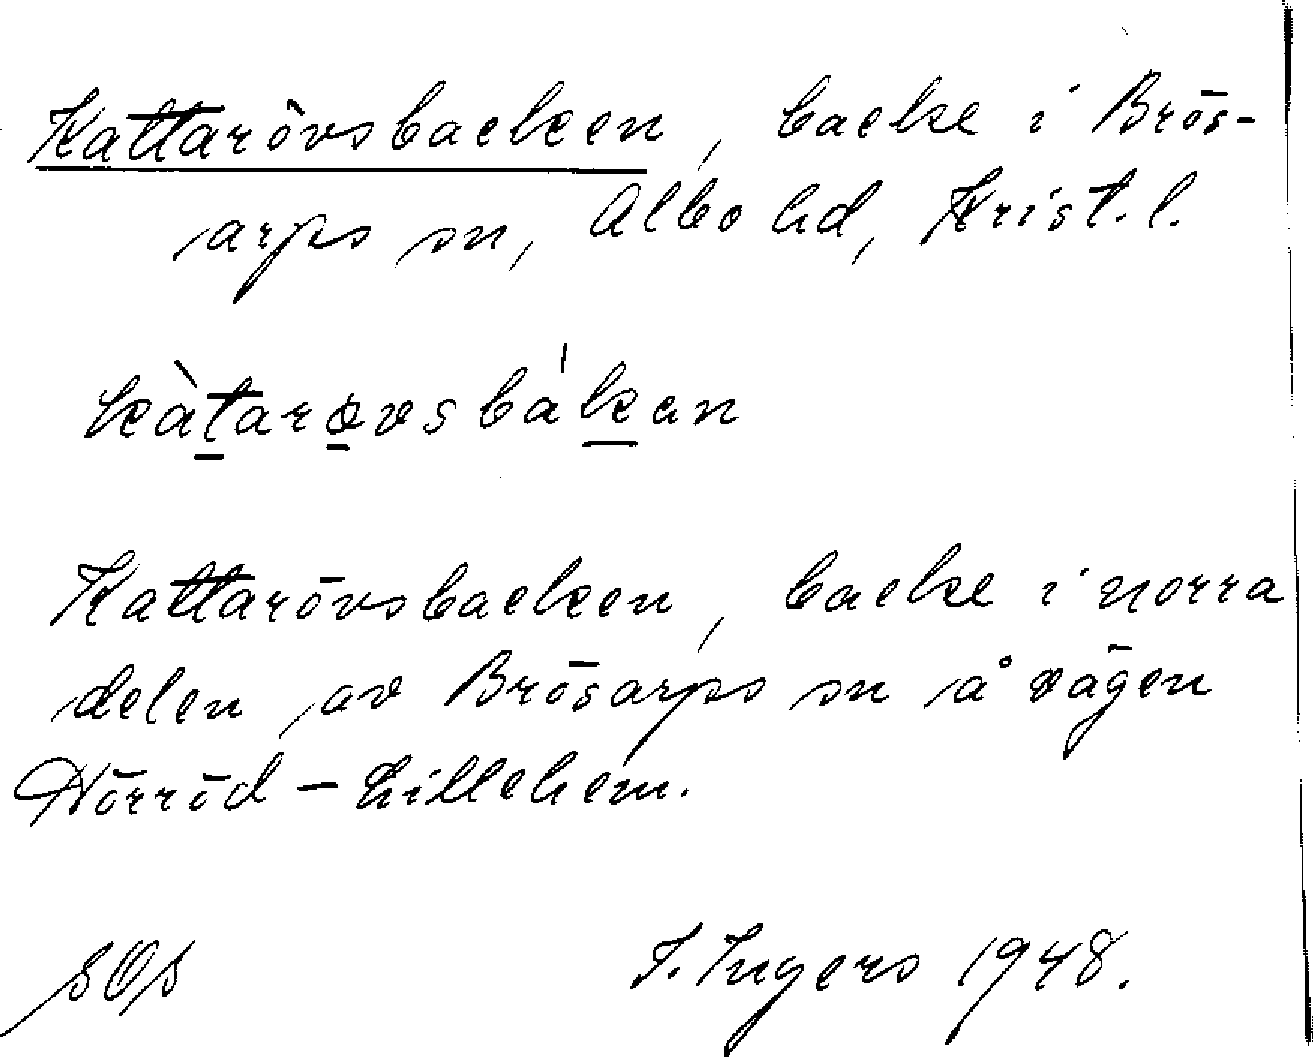 Kattarövsbacken, backe i Brös-
arps sn, Albo hd, Krist. l.
kàtarøvsbákan
Kattarövsbacken, backe i norra
delen av Brösarps sn å vägen
Nörröd – Lillehem.
SOS I. Ingers 1948.